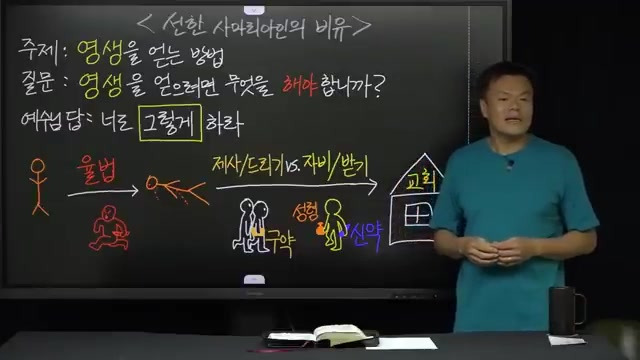 <선한 사마리아인의 비유>
주제: 영생을 얻는 방법
질문: 영생을 얻으려면 무엇을 해야 합니까?
예수님 답: 너도 그렇게 하라
율법
제사/드리기 vs. 자비/받기
교회
구약
성령
신약